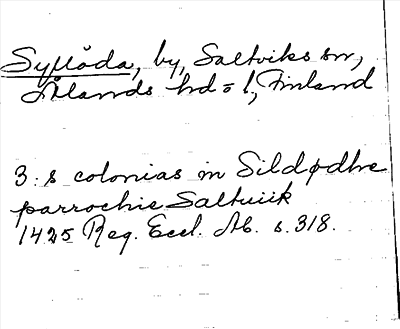 Syllöda, by, Saltviks sn,
Ålands hd o l, Finland
3: s colonias in Sildødhe
parrochie Saltuiik
1425 Reg. Eccl. Ab. s. 318.